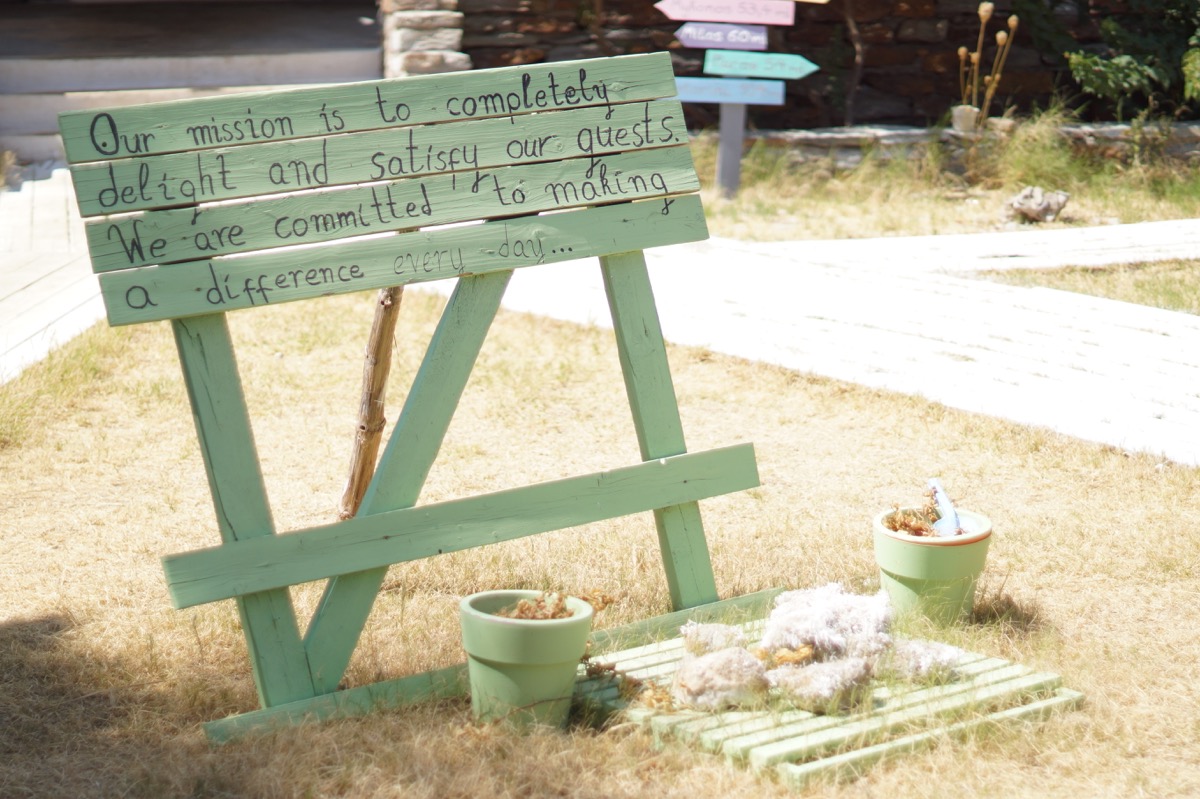 Mykonos 53,4 m
Milos 60 m
Our mission is to completely
delight and satisfy our guests.
We are committed to making
a difference every day...